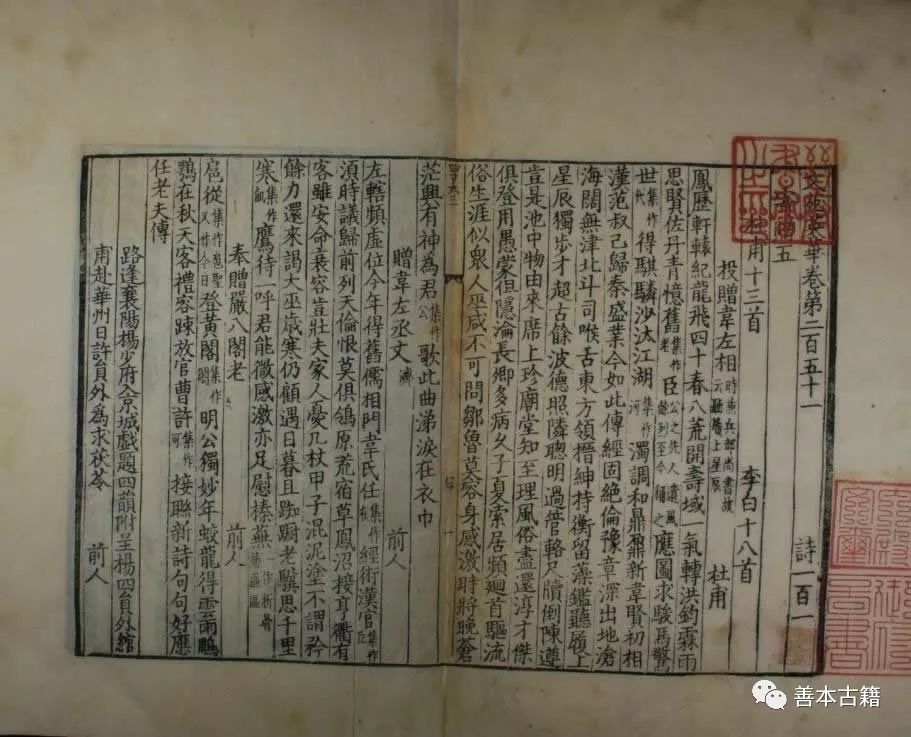 文苑英華卷第二百五十一 詩一百一
寄贈五
杜甫十三首 李白十八首
投贈韋左相 時兼兵部尚書故云聽履上星辰 杜甫
鳳歷軒轅紀龍飛四十春八荒開壽域一氣轉洪鈞霖雨
思賢佐丹青憶舊集作老臣公之先人遺風餘烈至今稱之應圖求駿馬驚
世集作代得騏驎沙汰江湖集作河濁調和鼎鼐新韋賢初相
漢范叔已歸秦盛業今如此傳經固絕倫豫章深出地滄
海闊無津北斗司喉舌東方領搢紳持衡留藻鑑聽履上
星辰獨步才超古餘波德照隣聰明過管輅尺牘倒陳遵
豈是池中物由來席上珍廟堂知至理風俗盡還淳才傑
俱登用愚蒙但隱淪長卿多病久子夏索居頻廻首驅流
俗生涯似衆人巫咸不可問鄒魯莫容身感激時將晚蒼
茫興有神為君集作公歌此曲涕淚在衣巾
贈韋左丞丈濟 前人
左轄頻虛位今年得舊儒相門韋氏在集作在經術漢官集作臣
須時議歸前列天倫恨莫俱鴒原荒宿草鳳沼接亨衢有
客雖安命衰容豈壯夫家人憂几杖甲子混泥塗不謂矜
餘力還來謁大巫歲寒仍顧遇日暮且踟躕老驥思千里
寒集作飢鷹待一呼君能微感激亦足慰榛蕪
奉贈嚴八閣老 前人
扈從集作扈聖又作今日登黃閣集作閤明公獨妙年蛟龍得雲雨鵰
鶚在秋天客禮容疎放官曹許集作可接聯新詩句句好應
任老夫傳
路逢襄陽楊少府入京城戲題四韻附呈楊四員外綰
甫赴華州日許員外為求茯苓 前人
善本古籍